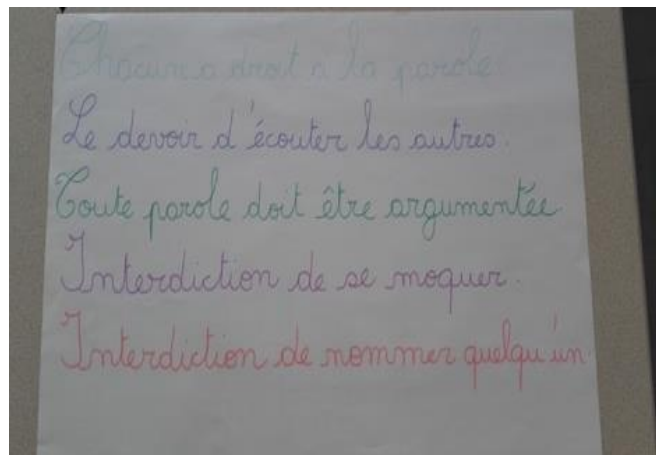 Chacun a droit a la parole
Le devoir d'écouter les autres.
Toute parole doit être argumentée
Interdiction de se moquer.
Interdiction de nommer quelqu'un